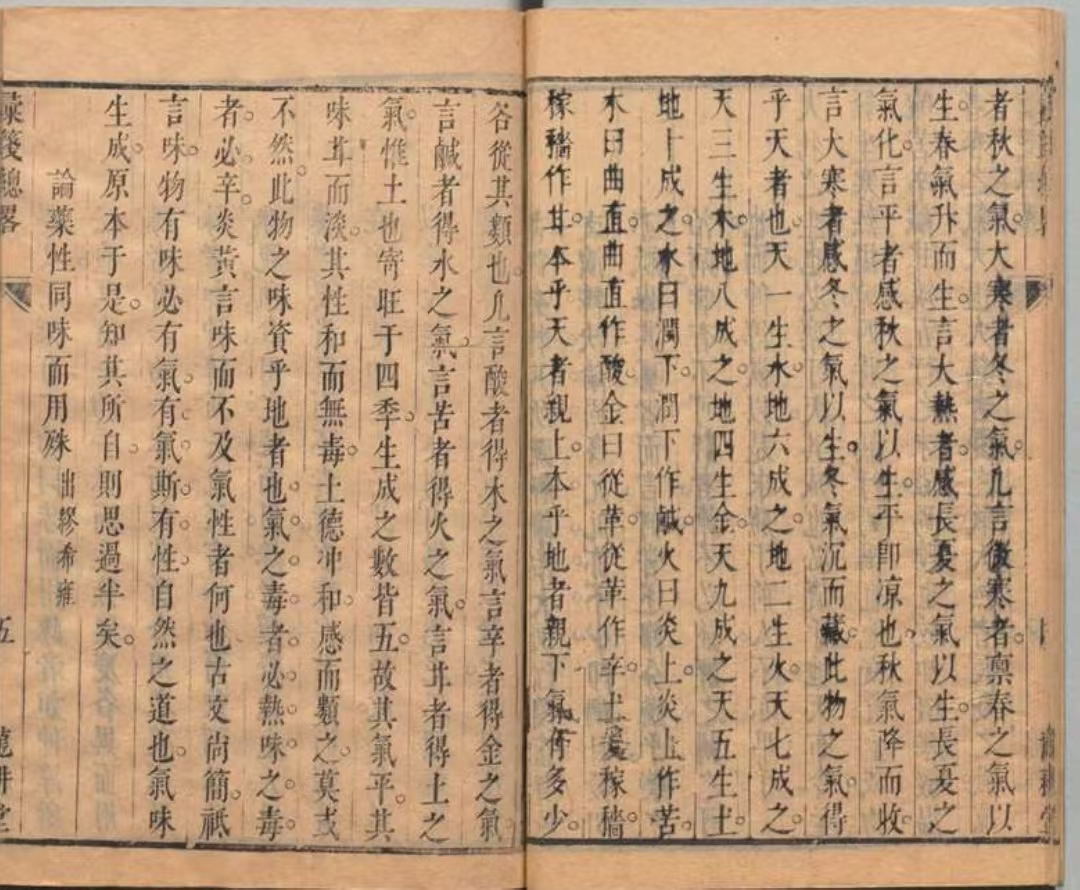 者秋之氣。大寒者冬之氣。凡言微寒者。禀春之氣以
生。春氣升而生。言大熱者。感長夏之氣以生。長夏之
氣化。言平者感秋之氣以生。平卽凉也。秋氣降而收。
言大寒者感冬之氣以生。冬氣沉而藏。此物之氣。得
乎天者也。天一生水。地六成之。地二生火。天七成之。
天三生木。地八成之。地四生金。天九成之。天五生土。
地十成之。水曰潤下。潤下作鹹。火曰炎上。炎上作苦。
木曰曲直。曲直作酸。金曰從革。從革作辛。土爰稼穡。
稼穡作甘。本乎天者親上。本乎地者親下。氣有多少。
各從其類也。凡言酸者得木之氣。言辛者得金之氣。
言鹹者得水之氣。言苦者得火之氣。言甘者得土之
氣。惟土也寄旺于四季。生成之數皆五。故其氣平。其
味甘而淡。其性和而無毒。土德冲和。感而類之。莫或
不然。此物之味資乎地者也。氣之毒者必熱。味之毒
者必辛。炎黃言味而不及氣性者何也。古文尚簡。祗
言味。物有味必有氣。有氣斯有性。自然之道也。氣味
生成。原本于是。知其所自。則思過半矣。
論藥性同味而用殊 出繆希雍
彙箋總畧
五